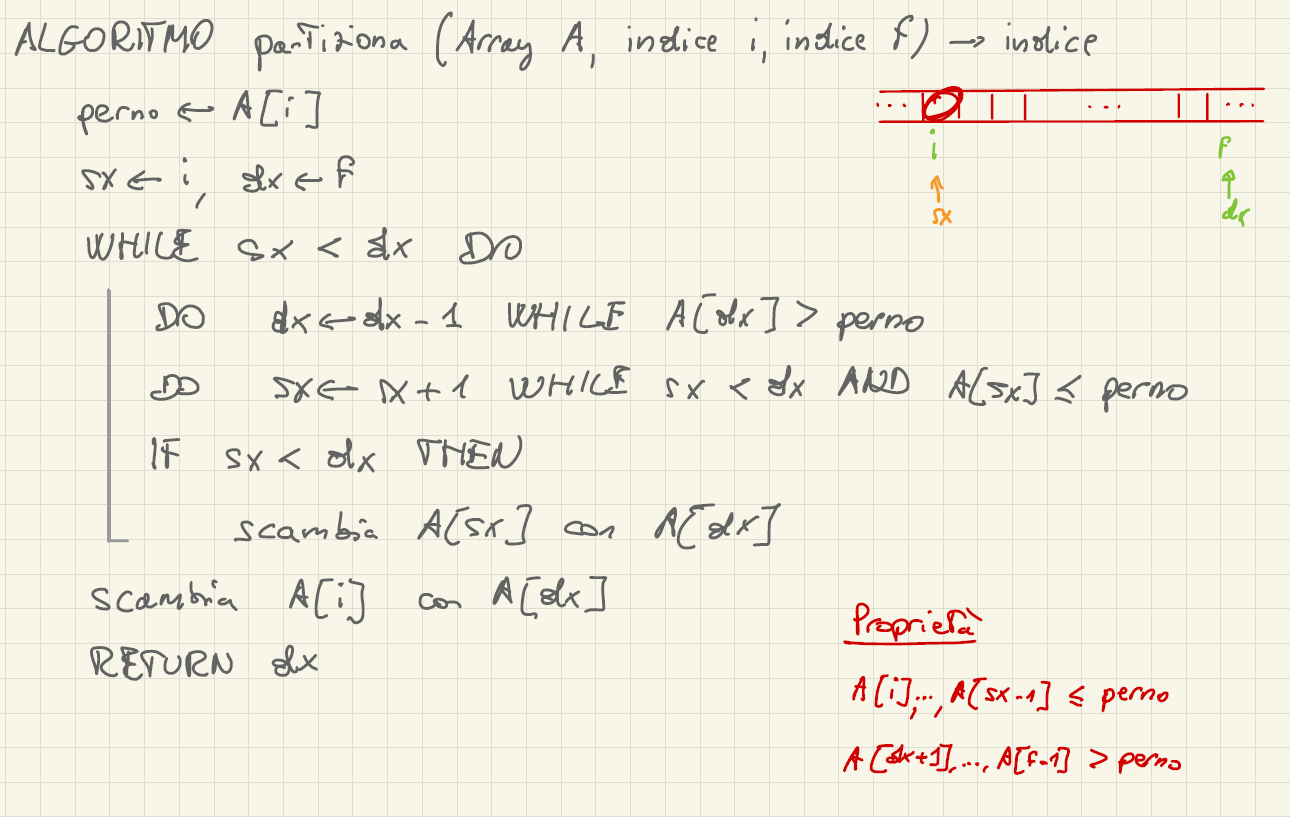 ALGORITMO partiziona (Array A, indice i, indice f) → indice
perno ← A[i]
... ... ...
sx ← i, dx ← f
i f
sx dx
WHILE sx < dx DO
DO dx ← dx - 1 WHILE A[dx] > perno
DO sx ← sx + 1 WHILE sx < dx AND A[sx] ≤ perno
IF sx < dx THEN
scambia A[sx] con A[dx]
scambia A[i] con A[dx]
Proprietà
RETURN dx
A[i],..., A[sx-1] ≤ perno
A[dx+1],..., A[f-1] > perno